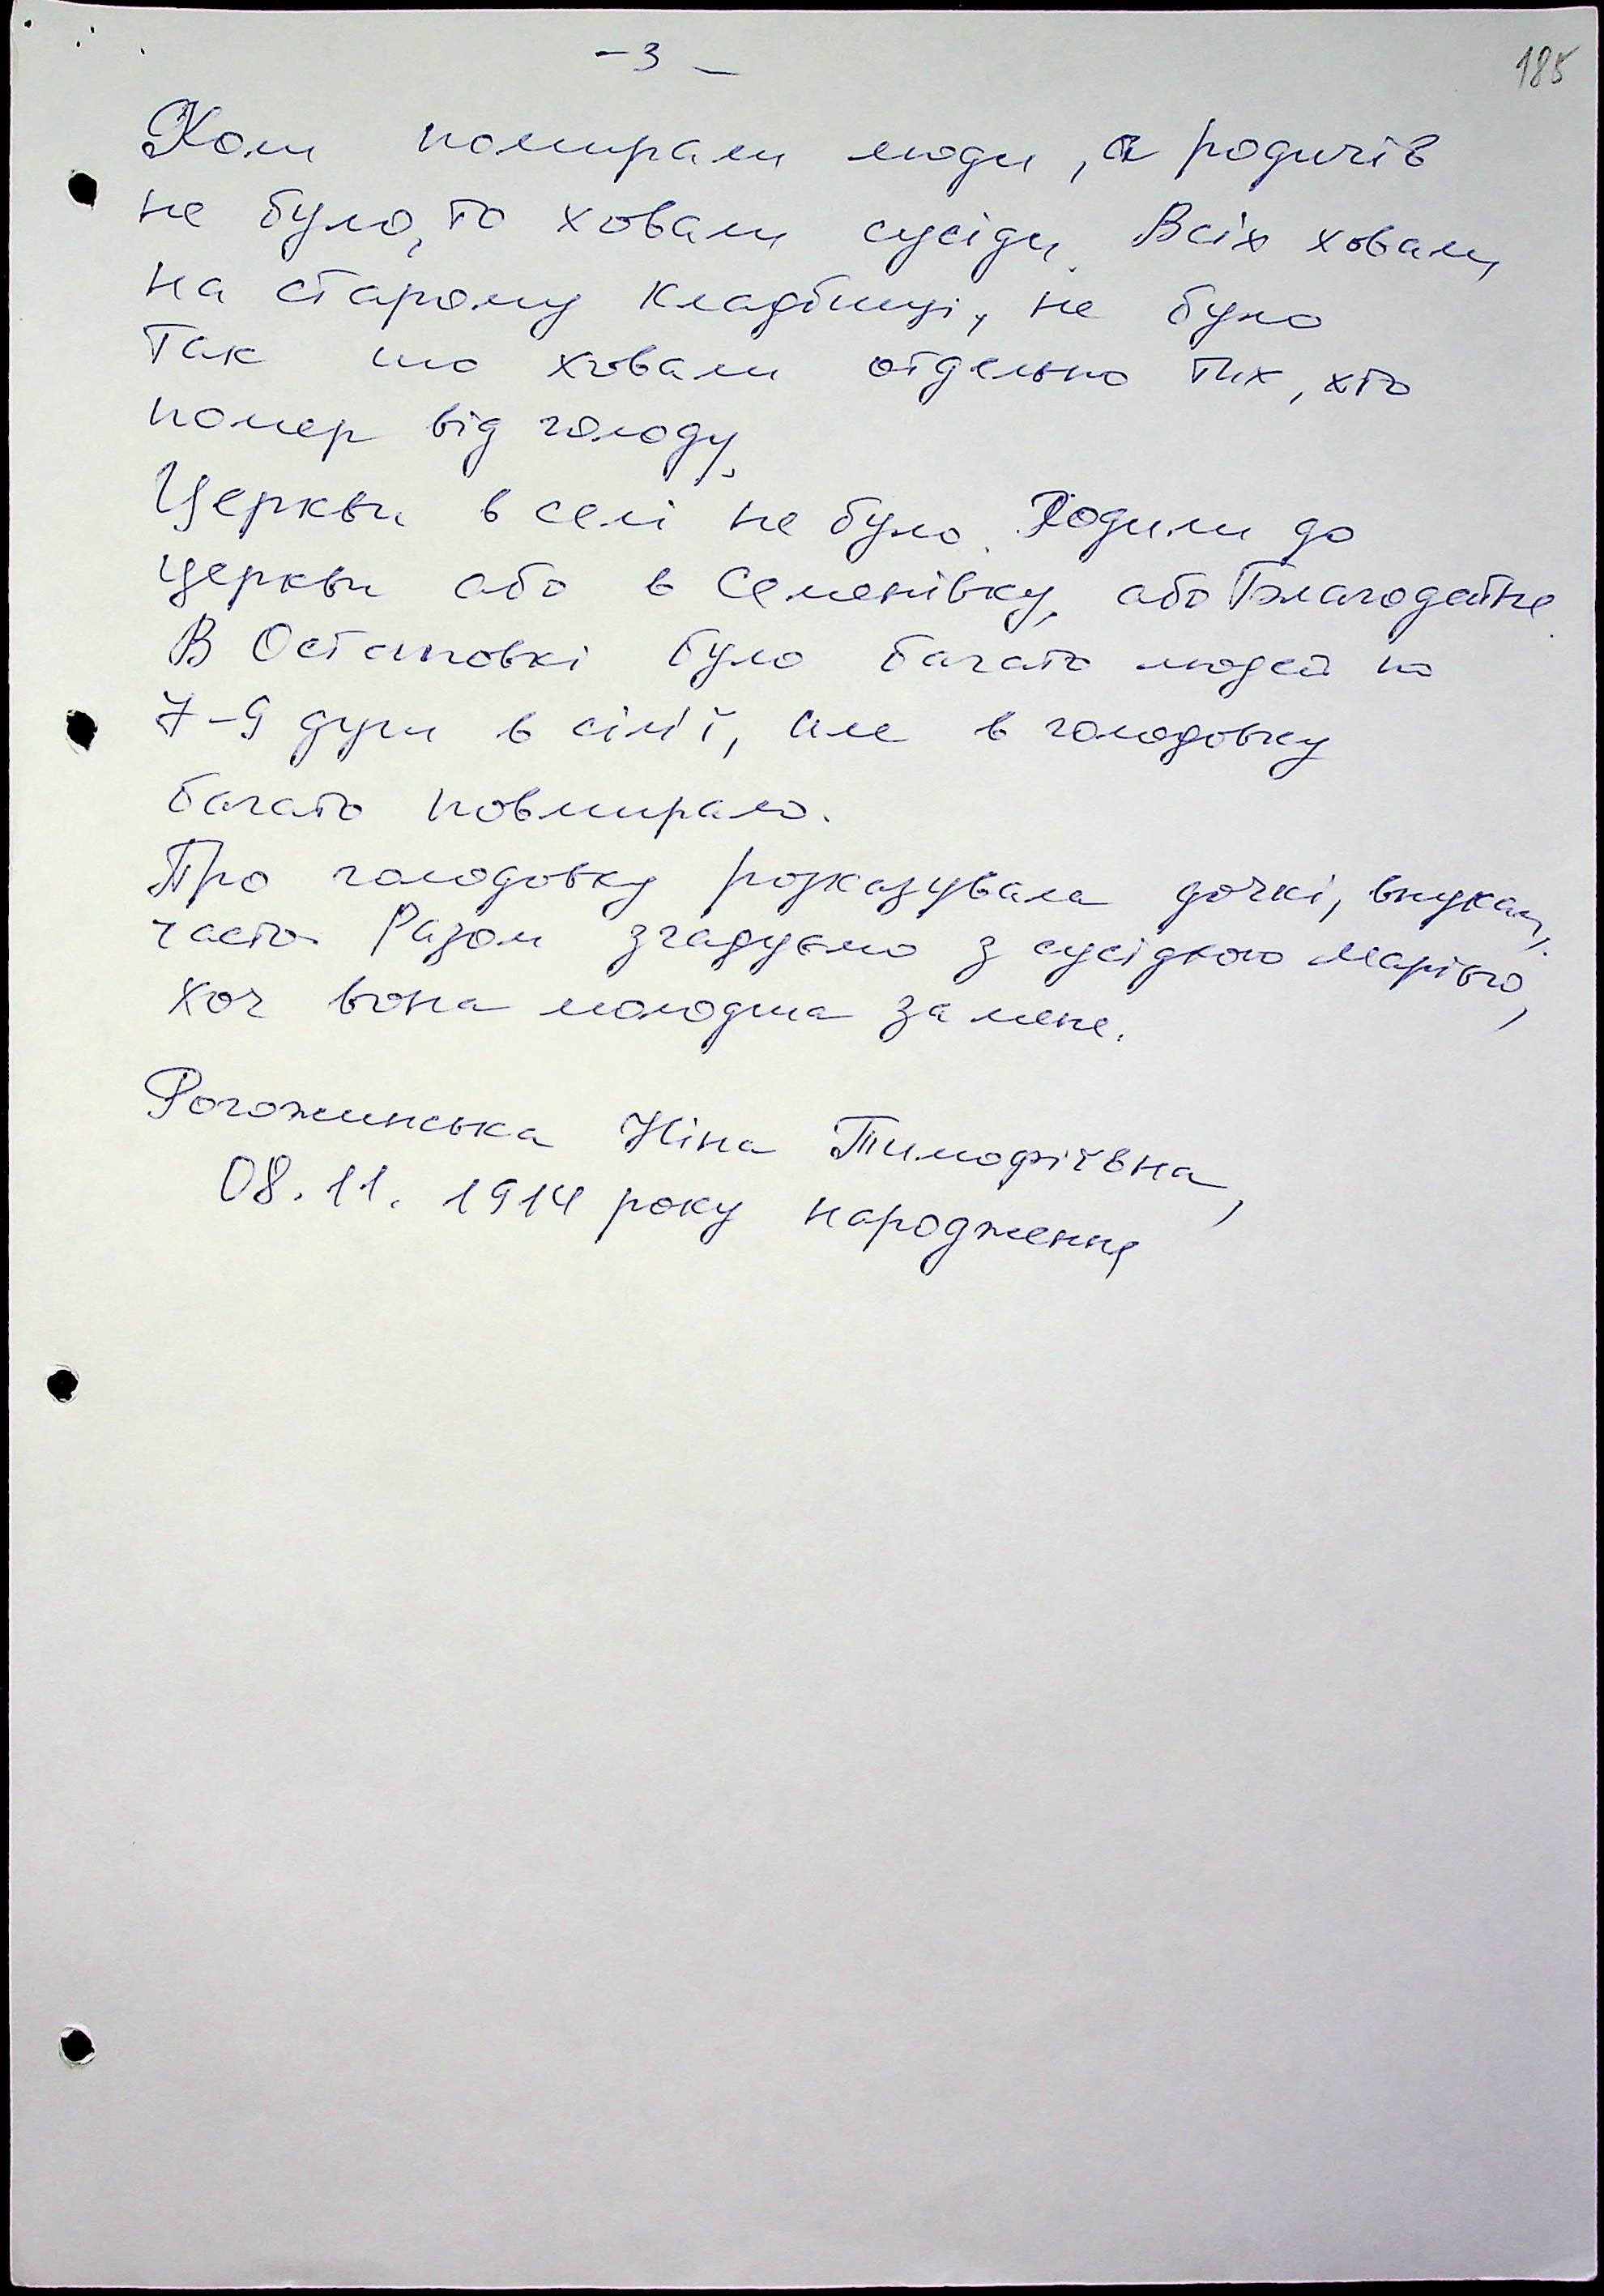 - 3 -
185
Коли помирали люди, а родичів
не було, то ховали сусіди. Всіх ховали
на старому кладбищі, не було
так шо ховали отдельно тих, хто
помер від голоду.
Церкви в селі не було. Ходили до
церкви або в Семенівку, або Благодатне.
В було багато людей по
7-9 душ в сім'ї, але в голодовку
багато повмирало.
Про голодовку розказувала дочкі, внукам,
часто. Разом згадуємо з сусідкою Марією,
хоч вона молодша за мене.
Рогожинська Ніна Тимофіївна,
08.11.1914 року народження